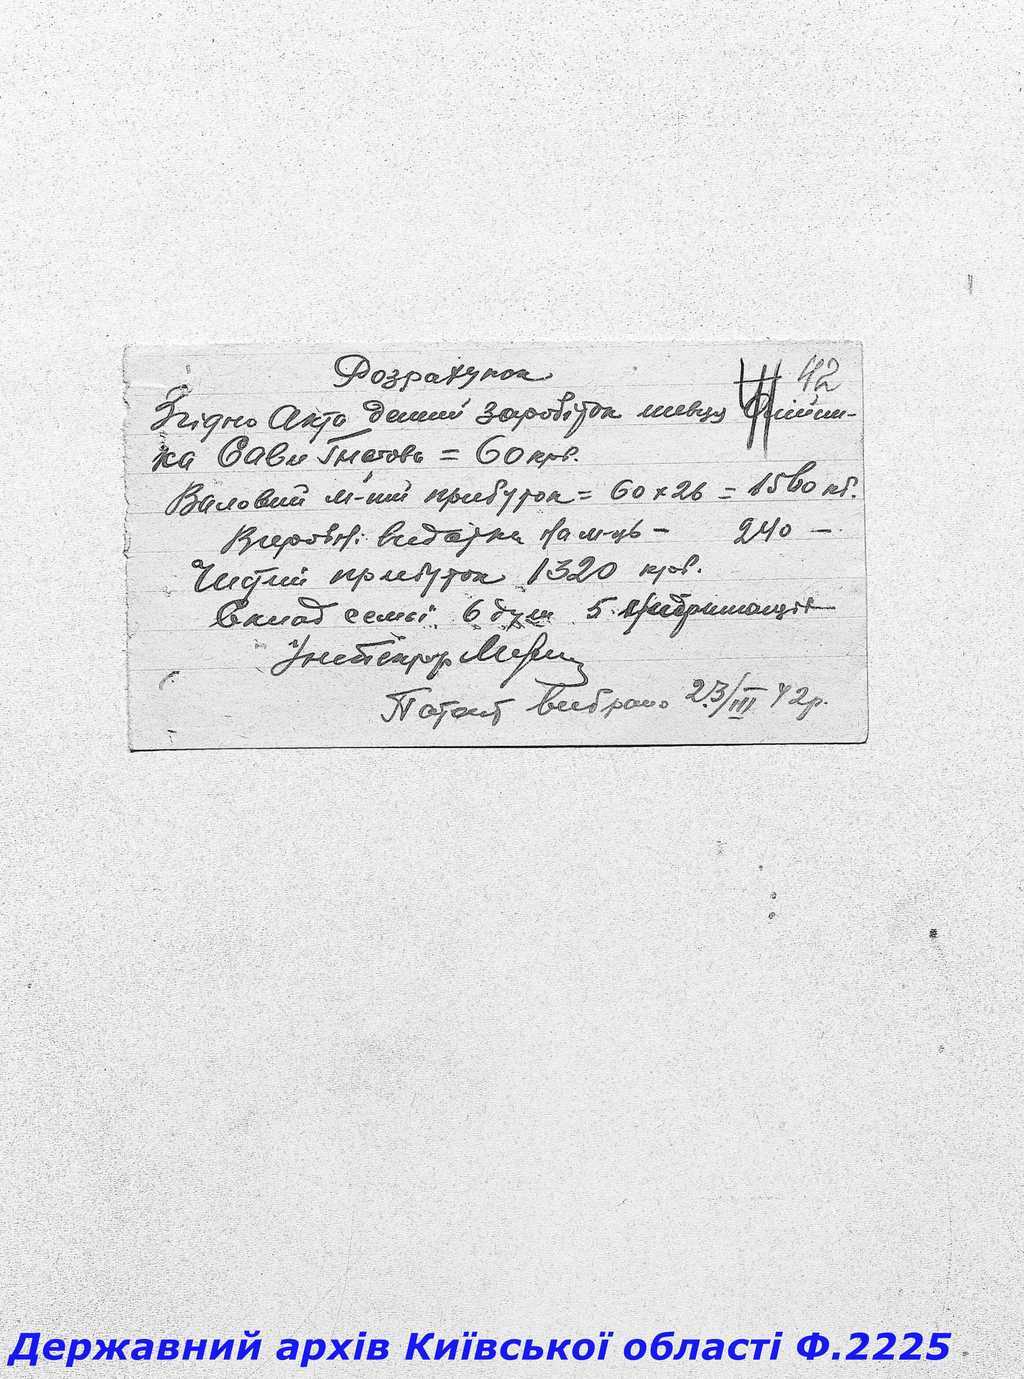 42
Розрахунок
Згідно Акта денний заробіток шевця
ка Сави Гнатова = 60 крб.
Валовий м-ний прибуток = 60 x 26 = 1560 кб.
Виробн. видатки на м-ць – 240 –
Чистий прибуток 1320 крб.
Склад семьі 6 душ 5
Інспектор
Патент вибрано 23/III 42р.
Державний архів Київської області Ф.2225